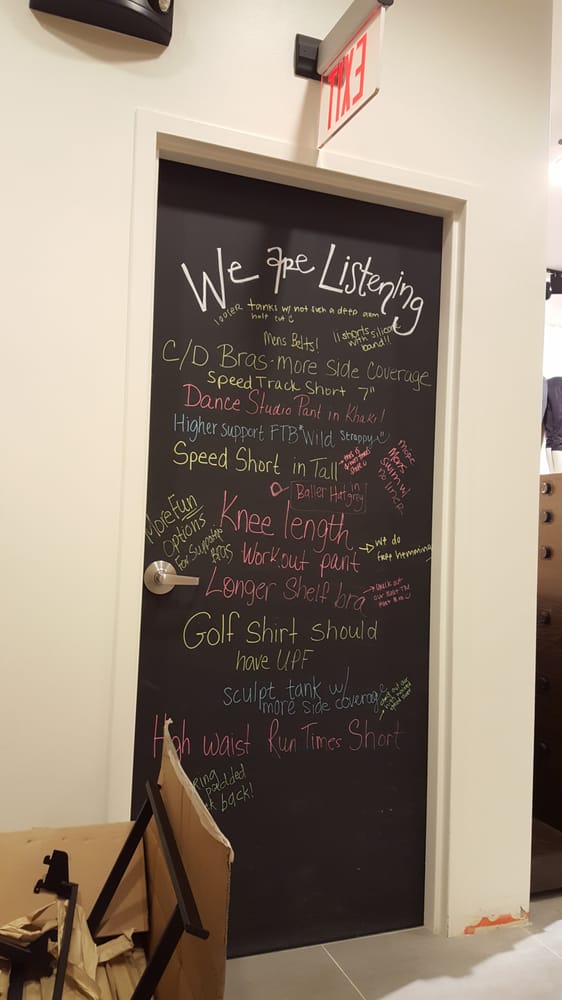 EXIT
We are Listening
looser tanks w/ not such a deep arm
hole cut
Mens Belts!
shorts
with silicone
band!!
C/D Bras-more side coverage
Speed Track Short 7"
Dance Studio Pant in Khaki!
Higher support FTB "Wild Strappy"
Speed Short in Tall
more
Mens
Swim w/
no liner
Baller Hat in grey
More Fun
Options
For Supportive
Bras
Knee length
Work.out pant
we do
free hemming
Longer Shelf bra
check out
our
Golf Shirt Should
have UPF
sculpt tank w/
more side coverage
High waist Run Times Short
padded
back!